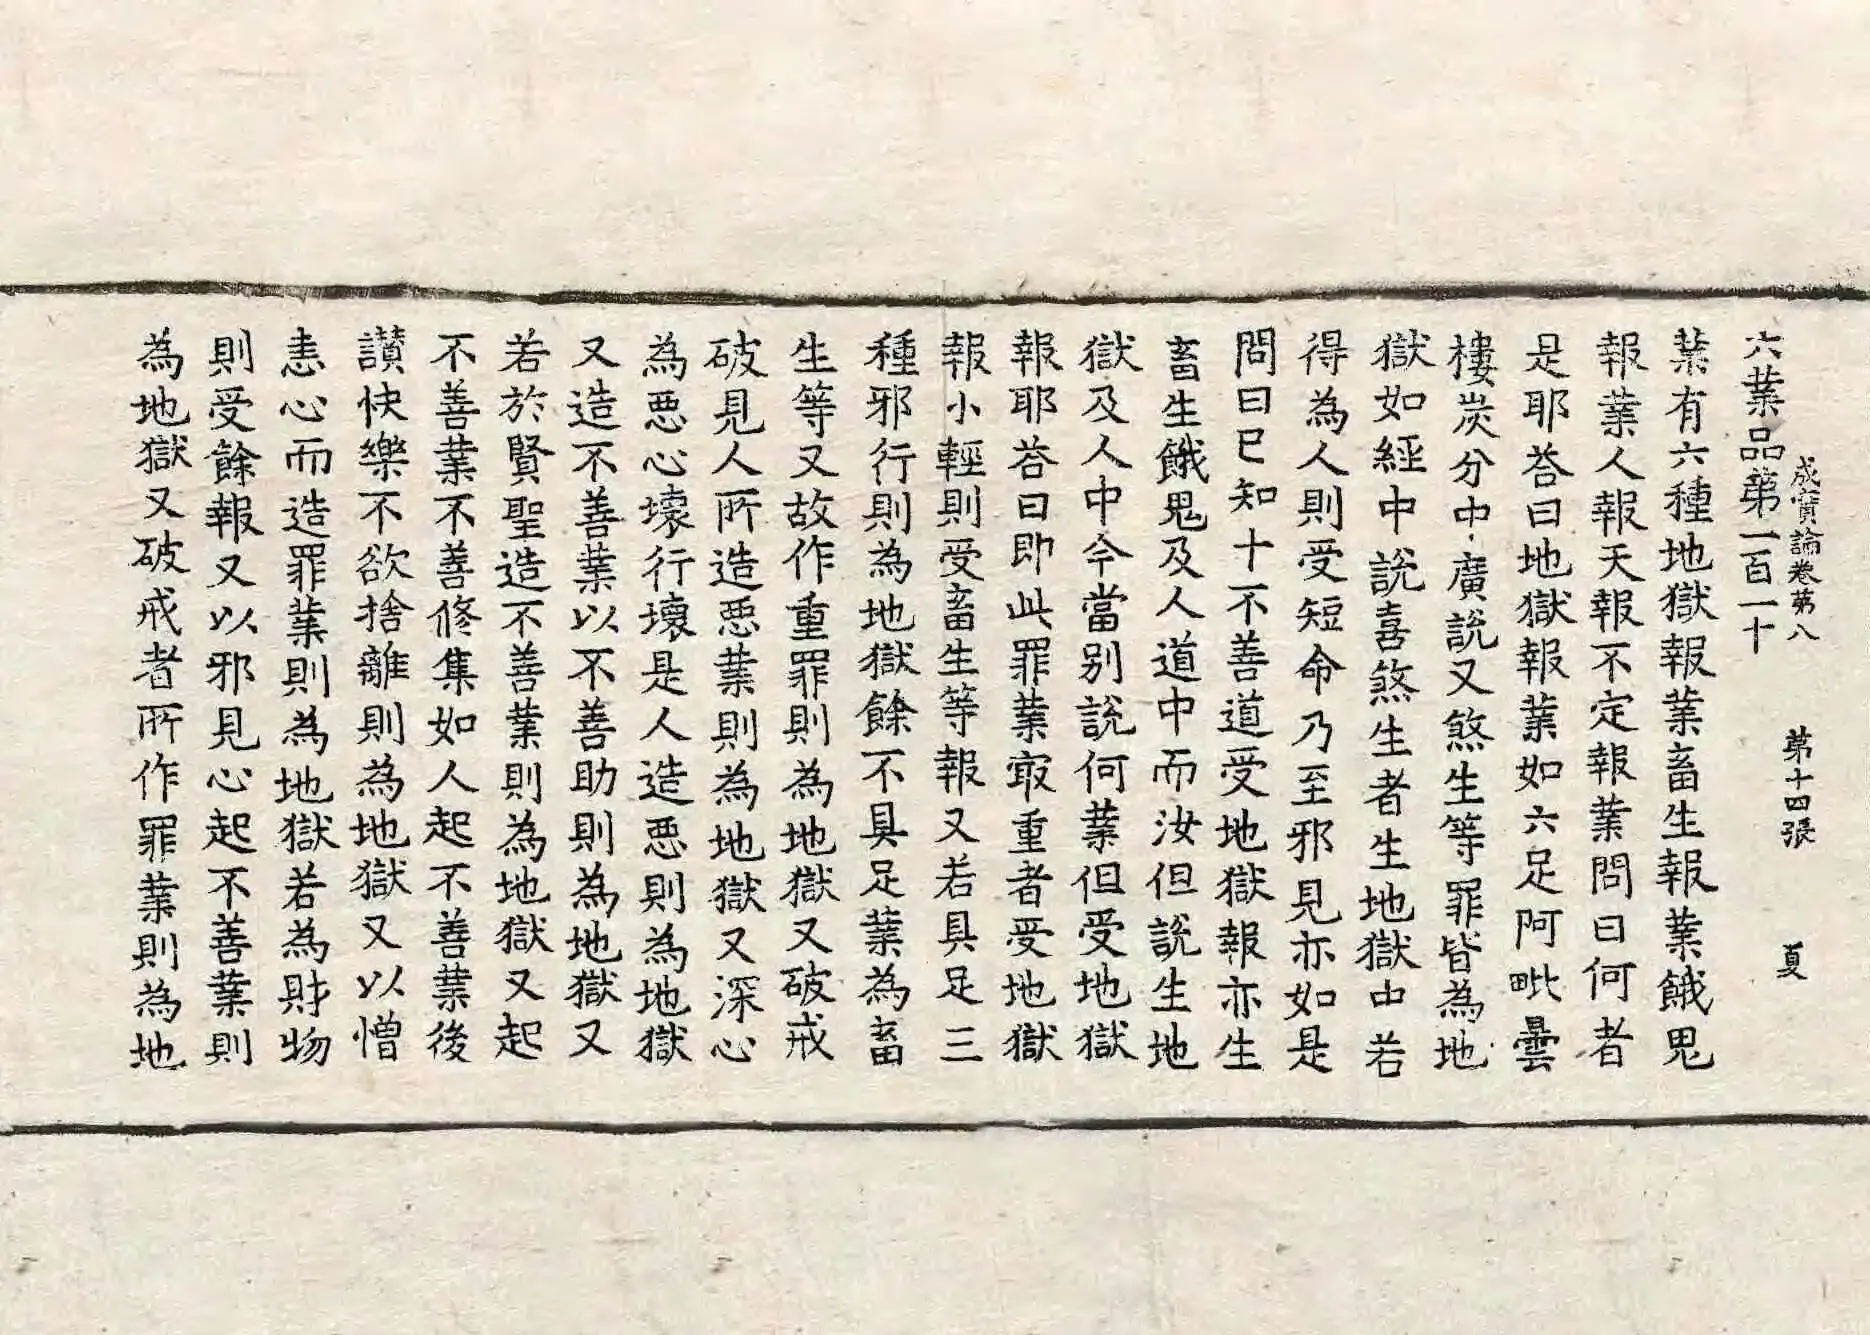 成實論卷第八 第十四張 夏
六業品第一百一十
業有六種地獄報業畜生報業餓鬼
報業人報天報不定報業問曰何者
是耶荅曰地獄報業如六足阿毗曇
樓炭分中廣說又煞生等罪皆為地
獄如經中說喜煞生者生地獄中若
得為人則受短命乃至邪見亦如是
問曰已知十不善道受地獄報亦生
畜生餓鬼及人道中而汝但說生地
獄及人中今當別說何業但受地獄
報耶荅曰即此罪業㝡重者受地獄
報小輕則受畜生等報又若具足三
種邪行則為地獄餘不具足業為畜
生等又故作重罪則為地獄又破戒
破見人所造惡業則為地獄又深心
為惡心壞行壞是人造惡則為地獄
又造不善業以不善助則為地獄又
若於賢聖造不善業則為地獄又起
不善業不善修集如人起不善業後
讃快樂不欲捨離則為地獄又以憎
恚心而造罪業則為地獄若為財物
則受餘報又以邪見心起不善業則
為地獄又破戒者所作罪業則為地